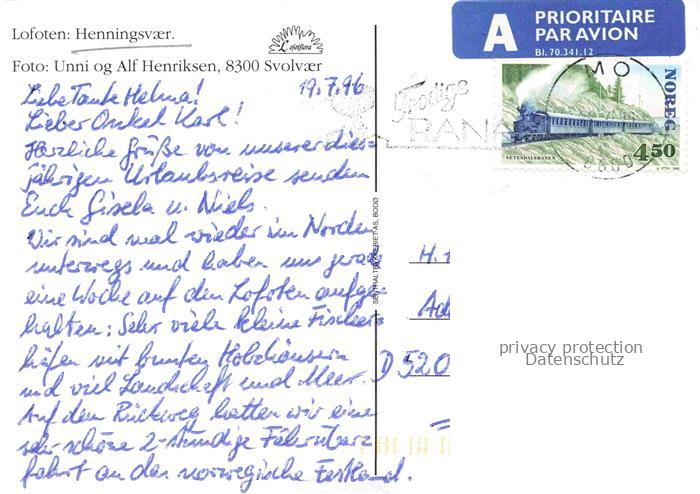 Lofoten: Henningsvær.
Lofotflora
Foto: Unni og Alf Henriksen, 8300 Svolvær
19.7.96
Liebe Tante Helma!
Lieber Onkel Karl!
Herzliche Grüße von unserer dies-
jährigen Urlaubsreise senden
Euch Gisela u. Niels.
Wir sind mal wieder im Norden
unterwegs und haben uns gerade
eine Woche auf den Lofoten aufge-
halten: Sehr viele kleine Fischer-
häfen mit bunten Holzhäusern
und viel Landschaft und Meer.
Auf dem Rückweg hatten wir eine
sehr schöne 2-stündige Fährüber-
fahrt an das norwegische Festland.
SENTRALTRYKKERIET AS, BODØ
A PRIORITAIRE
PAR AVION
Bl. 70.341.12
MO
8600
Frodige
RANA
NOREG
4 50
SETESDALSBANEN
H.
Ad
D 520
privacy protection
Datenschutz